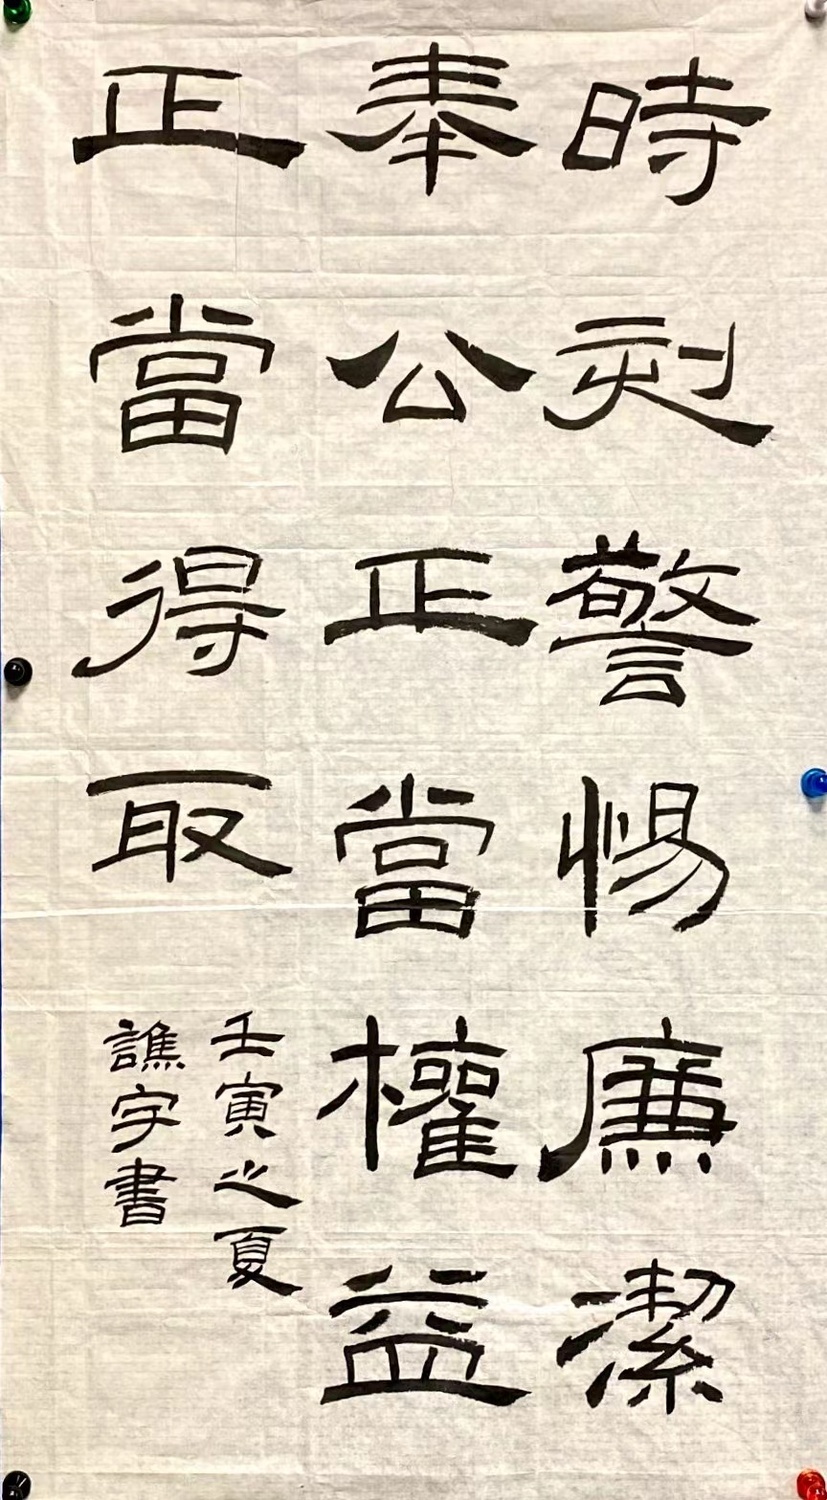 時刻警惕廉潔
奉公正當權益
正當得取
壬寅之夏
譙宇書